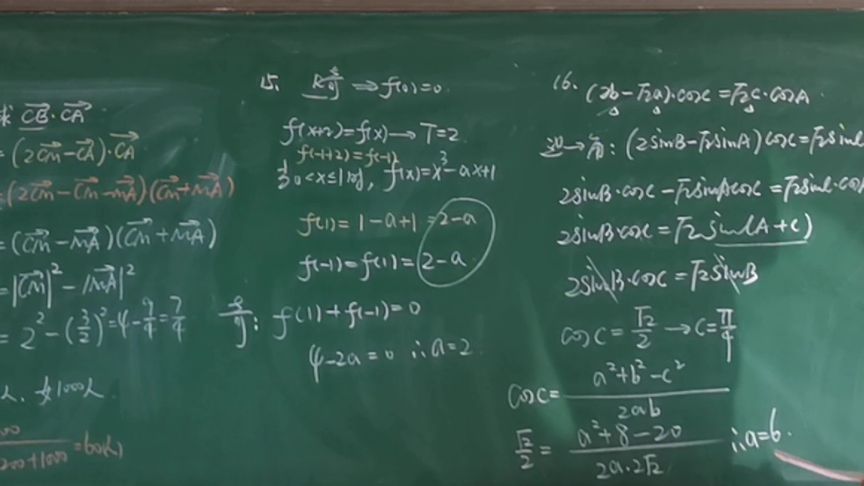 求 CB·CA
= (2CM-CA)·CA
= (2CM-CM-MA)(CM+MA)
= (CM-MA)(CM+MA)
= |CM|²-|MA|²
= 2²-(3/2)²=4-9/4=7/4
人. 女1000人
200+1000 =60(人)
15. R奇 ⇒f(0)=0.
f(x+2)=f(x)→T=2.
f(-1+2)=f(-1)
当0<x≤1时, f(x)=x³-ax+1
f(1)=1-a+1=2-a
f(-1)=f(1)=2-a.
奇: f(1)+f(-1)=0
4-2a=0 ∴a=2.
16. (2b-√2a)·cosC=√2c·cosA
边→角: (2sinB-√2sinA)cosC=√2sinC
2sinB·cosC-√2sinAcosC=√2sinC·cosA
2sinB·cosC=√2sin(A+C)
2sinB·cosC=√2sinB
cosC=√2/2→C=π/4
cosC=(a²+b²-c²)/2ab
√2/2=(a²+8-20)/2a·2√2 ∴a=6.